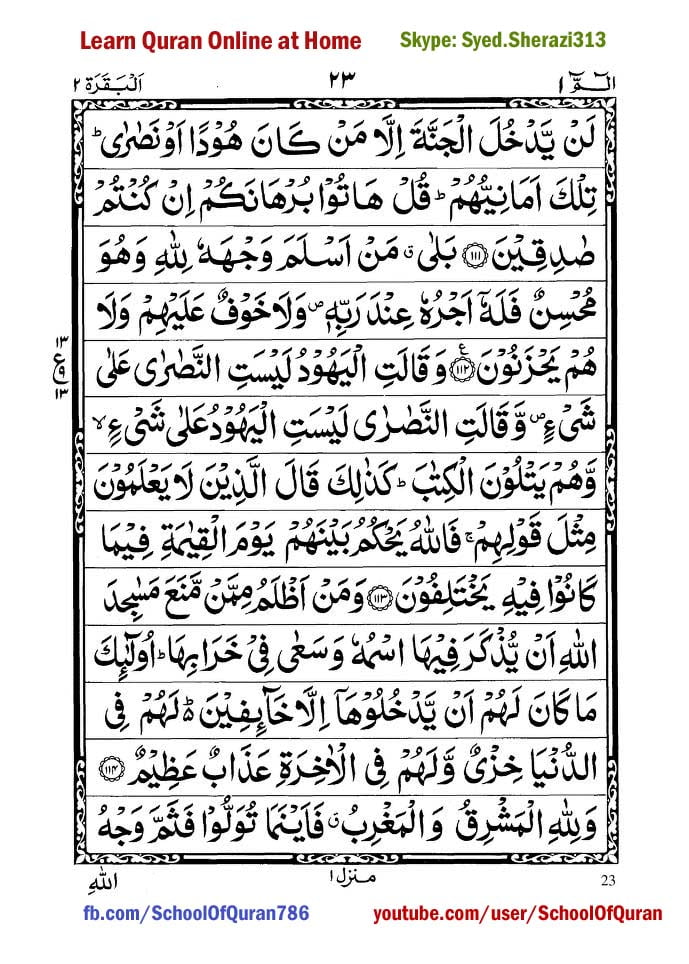 Learn Quran Online at Home Skype: Syed.Sherazi313
الٓمّٓ ١ ٢٣ اَلْبَقَرَة ٢
لَنْ يَّدْخُلَ الْجَنَّةَ اِلَّا مَنْ كَانَ هُوْدًا اَوْ نَصٰرٰىؕ
تِلْكَ اَمَانِيُّهُمْؕ قُلْ هَاتُوْا بُرْهَانَكُمْ اِنْ كُنْتُمْ
صٰدِقِيْنَ ﴿١١١﴾ بَلٰىۗ مَنْ اَسْلَمَ وَجْهَهٗ لِلّٰهِ وَهُوَ
مُحْسِنٌ فَلَهٗٓ اَجْرُهٗ عِنْدَ رَبِّهٖ۪ وَلَا خَوْفٌ عَلَيْهِمْ وَلَا
هُمْ يَحْزَنُوْنَ ﴿١١٢﴾ ع وَقَالَتِ الْيَهُوْدُ لَيْسَتِ النَّصٰرٰى عَلٰى
١٣ ع ٩ ١٣
شَيْءٍ۪ وَّقَالَتِ النَّصٰرٰى لَيْسَتِ الْيَهُوْدُ عَلٰى شَيْءٍۙ
وَّهُمْ يَتْلُوْنَ الْكِتٰبَؕ كَذٰلِكَ قَالَ الَّذِيْنَ لَا يَعْلَمُوْنَ
مِثْلَ قَوْلِهِمْۚ فَاللّٰهُ يَحْكُمُ بَيْنَهُمْ يَوْمَ الْقِيٰمَةِ فِيْمَا
كَانُوْا فِيْهِ يَخْتَلِفُوْنَ ﴿١١٣﴾ وَمَنْ اَظْلَمُ مِمَّنْ مَّنَعَ مَسٰجِدَ
اللّٰهِ اَنْ يُّذْكَرَ فِيْهَا اسْمُهٗ وَسَعٰى فِيْ خَرَابِهَاؕ اُولٰٓئِكَ
مَا كَانَ لَهُمْ اَنْ يَّدْخُلُوْهَآ اِلَّا خَآئِفِيْنَ۬ؕ لَهُمْ فِي
الدُّنْيَا خِزْيٌ وَّلَهُمْ فِي الْاٰخِرَةِ عَذَابٌ عَظِيْمٌ ﴿١١٤﴾
وَلِلّٰهِ الْمَشْرِقُ وَالْمَغْرِبُۗ فَاَيْنَمَا تُوَلُّوْا فَثَمَّ وَجْهُ
اللّٰهِ منزل ١ 23
fb.com/SchoolOfQuran786 youtube.com/user/SchoolOfQuran